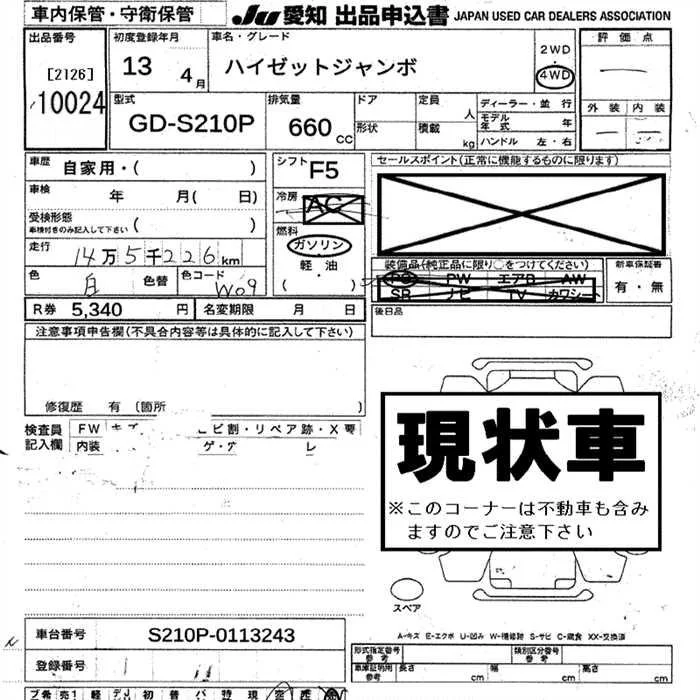 車内保管・守衛保管
JU 愛知 出品申込書 JAPAN USED CAR DEALERS ASSOCIATION
出品番号
[2126]
10024
初度登録年月
13 4月
車名・グレード
ハイゼットジャンボ
2WD
4WD
評価点
外装 内装
型式
GD-S210P
排気量
660 CC
ドア
形状
定員 人
積載 kg
ディーラー・並行
モデル年式 年
ハンドル 左・右
車歴 自家用・( )
車検 年 月( 日)
受検形態
車検付きのみ記入して下さい ( )
走行 14万5千226km
色 白 色替 色コード W09
シフト F5
冷房 AC
燃料
ガソリン
・
軽・油
( )
セールスポイント(正常に機能するものに限ります)
装備品(純正品に限り○をつけてください)
PS PW エアB AW
SR ナビ TV カワシート
新車保証書
有・無
R券 5,340 円 名変期限 月 日
後日品
注意事項申告欄(不具合内容等は具体的に記入して下さい)
修復歴 有 (箇所 )
検査員記入欄
FW
ビ割・リペア跡・X要
内装
現状車
※このコーナーは不動車も含みますのでご注意下さい
スペア
A-キズ E-エクボ U-凹み W-補修跡 S-サビ C-腐食 XX-交換済
車台番号 S210P-0113243
登録番号
形式指定番号 参考
類別区分番号 参考
車庫証明用 参考 長さ cm 幅 cm 高さ cm